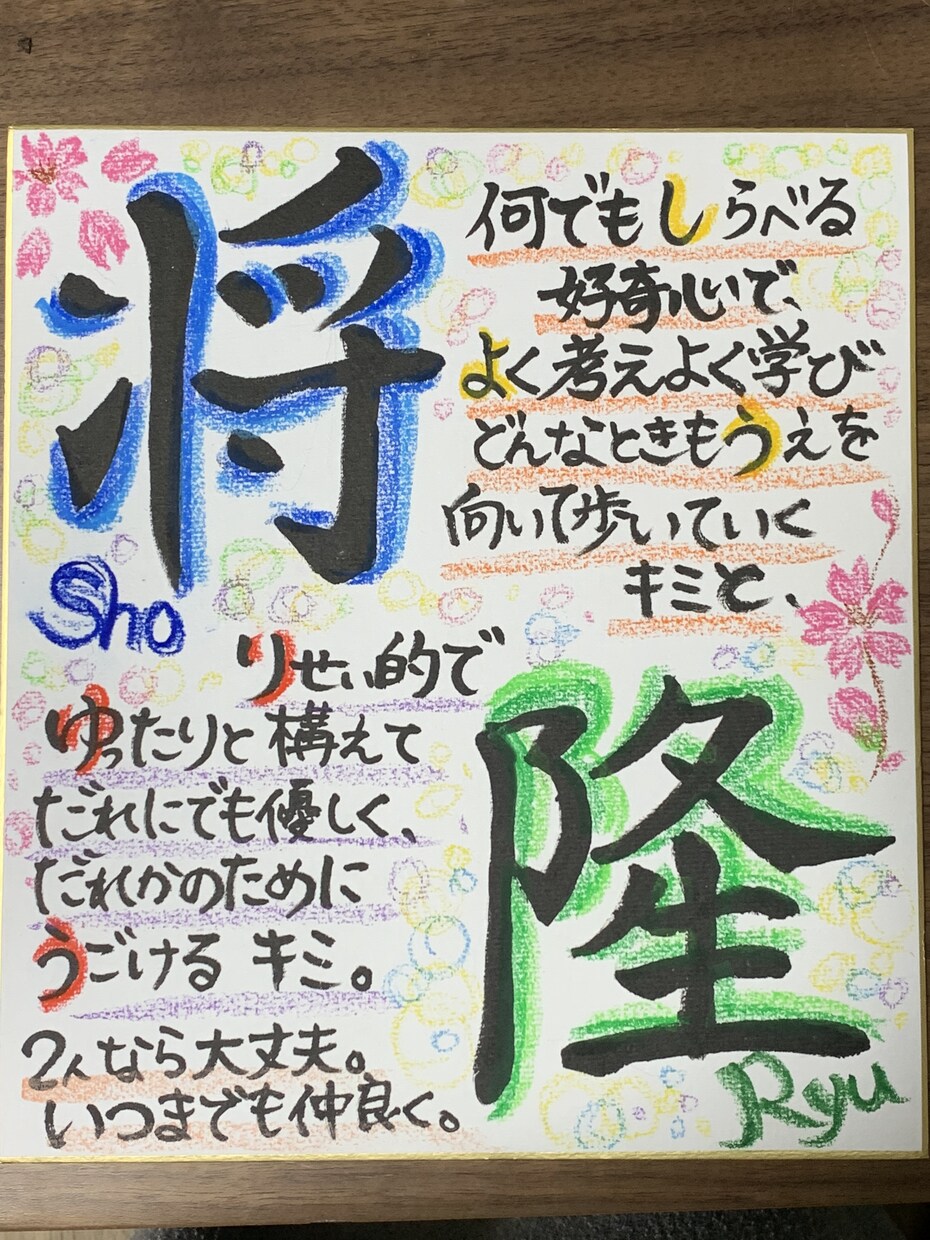 将
Sho
何でもしらべる
好奇心いで、
よく考えよく学び
どんなときもうえを
向いて歩いていく
キミと、
りせい的で
ゆったりと構えて
だれにでも優しく、
だれかのために
うごける キミ。
隆
Ryu
2人なら大丈夫。
いつまでも仲良く。